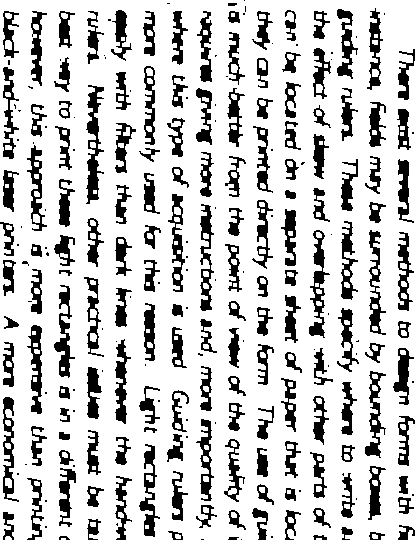 There exist several methods to design forms with
instance, fields may be surrounded by bounding boxes, b
guiding rulers. These methods specify where to write a
the effect of skew and overlapping with other parts of t
can be located on a separate sheet of paper that is loc
they can be printed directly on the form. The use of
is much better from the point of view of the quality of
requires giving more instructions and, more importantly,
where this type of acquisition is used. Guiding rulers p
more commonly used for this reason. Light rectangles
easily with filters than dark lines whenever the hand
rulers. Nevertheless, other practical issues must be ta
best way to print these light rectangles is in a different c
however, this approach is more expensive than printin
black-and-white laser printers. A more economical and